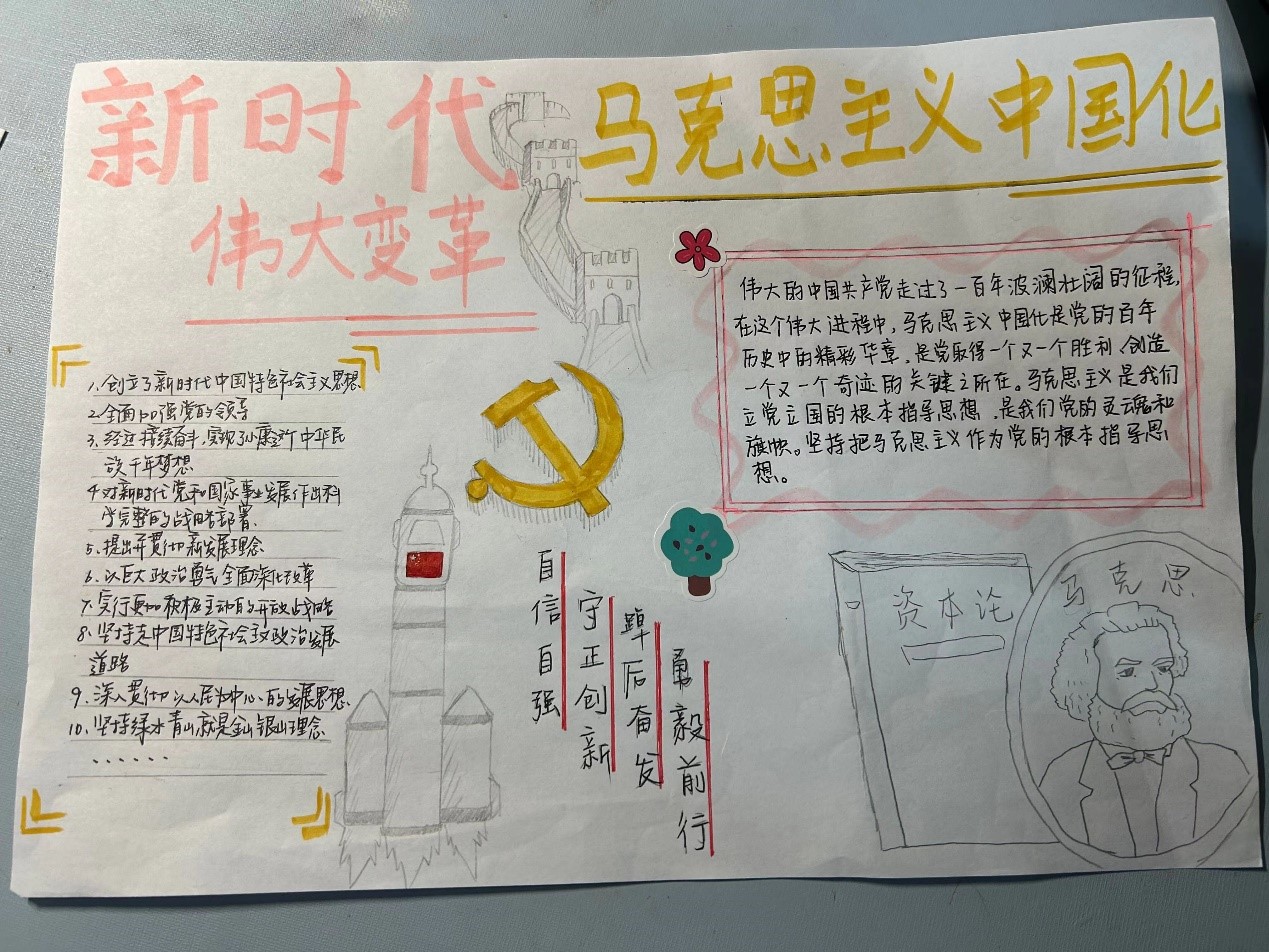 新时代
伟大变革
马克思主义中国化
1.创立了新时代中国特色社会主义思想
2.全面加强党的领导
3.经过持续奋斗,实现了小康这个中华民
族千年梦想
4.对新时代党和国家事业发展作出科
学完整的战略部署.
5.提出并贯彻新发展理念
6.以巨大政治勇气全面深化改革
7.实行更加积极主动的开放战略
8.坚持走中国特色社会主义政治发展
道路
9.深入贯彻以人民为中心的发展思想.
10.坚持绿水青山就是金山银山理念
......
伟大的中国共产党走过了一百年波澜壮阔的征程,
在这个伟大进程中,马克思主义中国化是党的百年
历史中的精彩华章,是党取得一个又一个胜利、创造
一个又一个奇迹的关键之所在。马克思主义是我们
立党立国的根本指导思想,是我们党的灵魂和
旗帜。坚持把马克思主义作为党的根本指导思
想。
自信自强
守正创新
踔厉奋发
勇毅前行
资本论
马克思